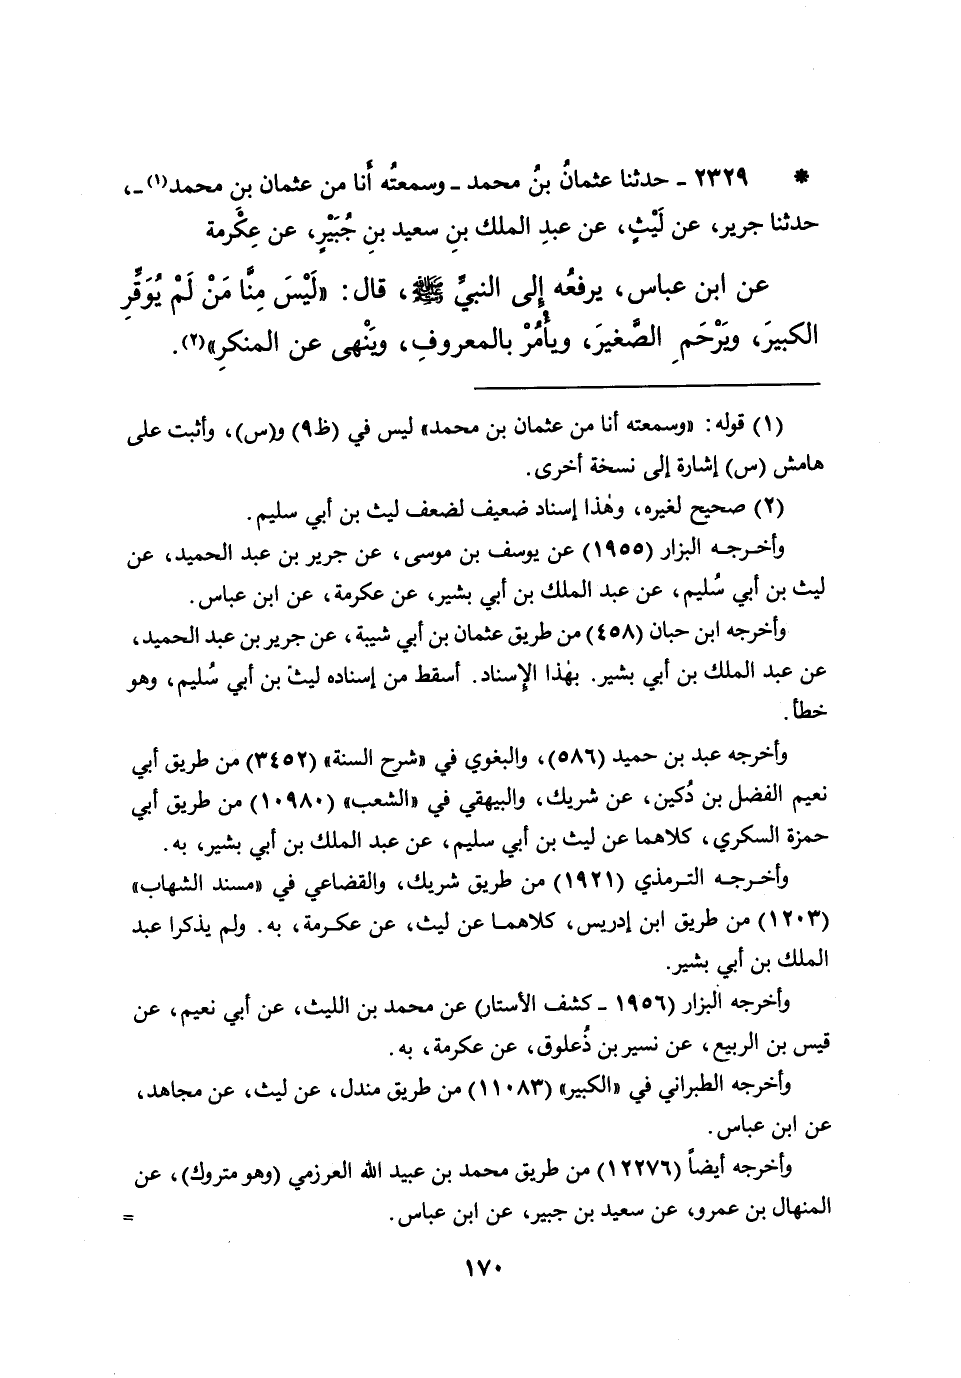 * ٢٣٢٩ - حدثنا عثمانُ بنُ محمد - وسمعتُه أَنا من عثمان بن محمد(١) -،
حدثنا جرير، عن لَيْثٍ، عن عبدِ الملك بنِ سعيد بنِ جُبَيْرٍ، عن عِكْرمة
عن ابن عباس، يرفعُه إِلى النبيِّ ﷺ، قال: «لَيْسَ مِنَّا مَنْ لَمْ يُوَقِّرِ
الكبيرَ، ويَرْحَمِ الصَّغيرَ، ويأْمُرْ بالمعروفِ، ويَنْهى عن المنكرِ»(٢).
(١) قوله: «وسمعته أنا من عثمان بن محمد» ليس في (ظ٩) و(س)، وأثبت على
هامش (س) إشارة إلى نسخة أخرى.
(٢) صحيح لغيره، وهٰذا إسناد ضعيف لضعف ليث بن أبي سليم.
وأخرجه البزار (١٩٥٥) عن يوسف بن موسى، عن جرير بن عبد الحميد، عن
ليث بن أبي سُليم، عن عبد الملك بن أبي بشير، عن عكرمة، عن ابن عباس.
وأخرجه ابن حبان (٤٥٨) من طريق عثمان بن أبي شيبة، عن جرير بن عبد الحميد،
عن عبد الملك بن أبي بشير. بهٰذا الإسناد. أسقط من إسناده ليث بن أبي سُليم، وهو
خطأ.
وأخرجه عبد بن حميد (٥٨٦)، والبغوي في «شرح السنة» (٣٤٥٢) من طريق أبي
نعيم الفضل بن دُكين، عن شريك، والبيهقي في «الشعب» (١٠٩٨٠) من طريق أبي
حمزة السكري، كلاهما عن ليث بن أبي سليم، عن عبد الملك بن أبي بشير، به.
وأخرجه الترمذي (١٩٢١) من طريق شريك، والقضاعي في «مسند الشهاب»
(١٢٠٣) من طريق ابن إدريس، كلاهما عن ليث، عن عكرمة، به. ولم يذكرا عبد
الملك بن أبي بشير.
وأخرجه البزار (١٩٥٦ - كشف الأستار) عن محمد بن الليث، عن أبي نعيم، عن
قيس بن الربيع، عن نسير بن ذُعلوق، عن عكرمة، به.
وأخرجه الطبراني في «الكبير» (١١٠٨٣) من طريق مندل، عن ليث، عن مجاهد،
عن ابن عباس.
وأخرجه أيضاً (١٢٢٧٦) من طريق محمد بن عبيد الله العرزمي (وهو متروك)، عن
المنهال بن عمرو، عن سعيد بن جبير، عن ابن عباس. =
١٧٠